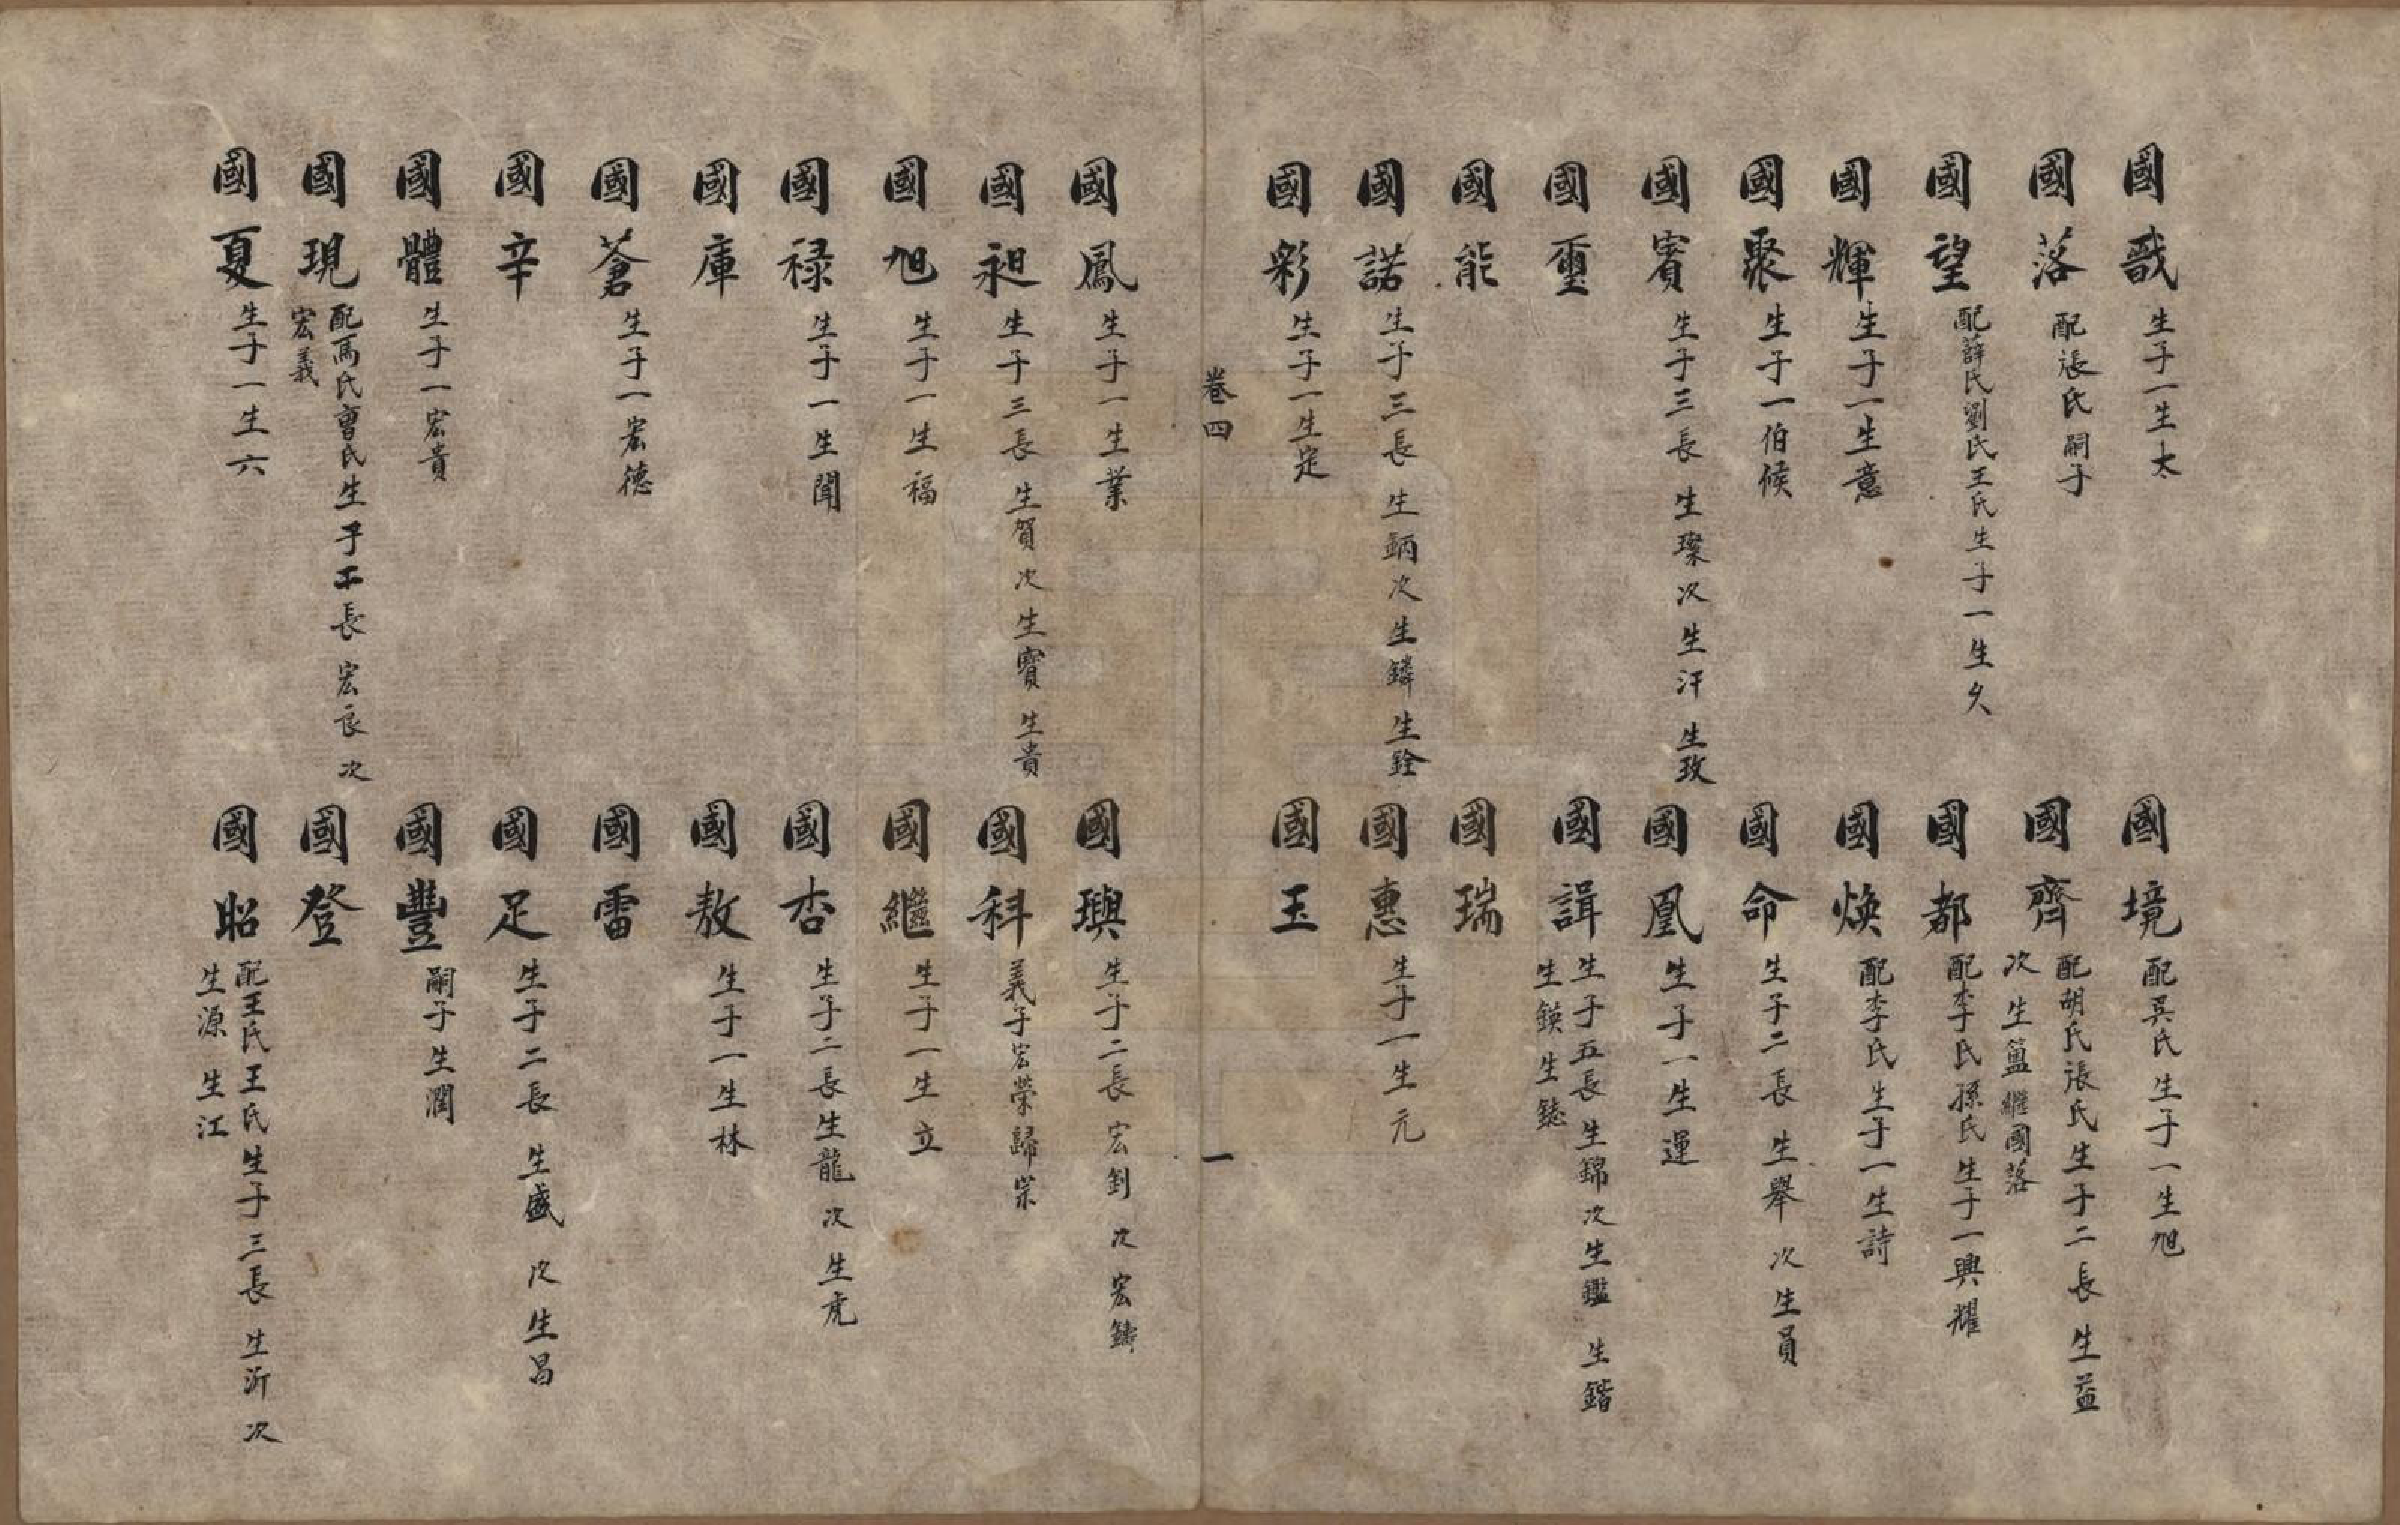 國哉 生子一生太
國落 配張氏嗣子
國望 配薛氏劉氏王氏生子一生久
國輝 生子一生意
國聚 生子一伯候
國賓 生子三長生璨次生汗生玫
國璽
國能
國諾 生子三長生鈵次生鏻生銓
國彩 生子一生定
國境 配吳氏生子一生旭
國齊 配胡氏張氏生子二長生益
次生簠繼國落
國都 配李氏孫氏生子一興耀
國煥 配李氏生子一生詩
國命 生子二長生舉次生員
國凰 生子一生運
國諿 生子五長生錦次生鑑生鍇
生鍈生鋕
國瑞
國惠 生子一生元
國玉
卷四
一
國鳳 生子一生業
國昶 生子三長生賀次生賓生貴
國旭 生子一生福
國禄 生子一生聞
國庫
國蒼 生子一宏德
國辛
國體 生子一宏貴
國現 配馬氏曹氏生子二長宏良次
宏義
國夏 生子一生六
國璵 生子二長宏釗次宏鑄
國科 義子宏榮歸宗
國繼 生子一生立
國杏 生子二長生龍次生虎
國敖 生子一生林
國雷
國足 生子二長生盛次生昌
國豐 嗣子生潤
國登
國昭 配王氏王氏生子三長生沂次
生源生江